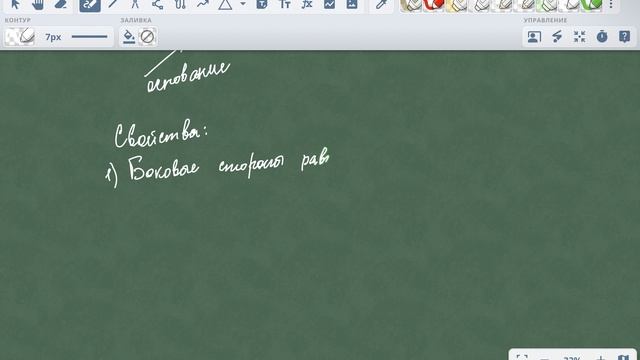 КОНТУР ЗАЛИВКА УПРАВЛЕНИЕ
7px
основание
Свойства:
1) Боковые стороны рав